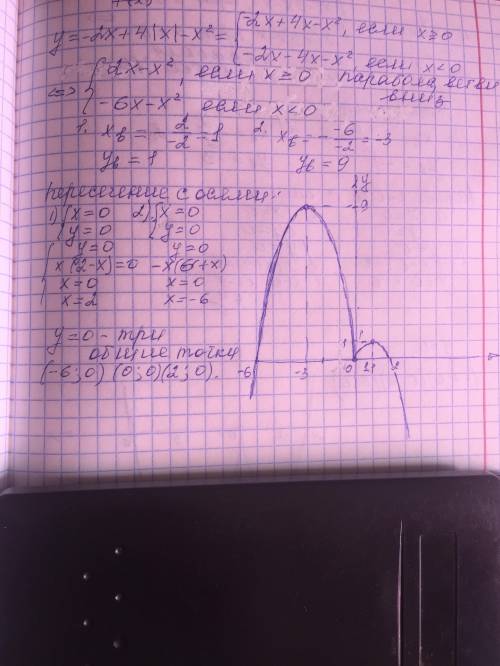 y=-2x+4|x|-x²= { 2x+4x-x², если x≥0
-2x-4x-x², если x<0
<=> { 2x-x², если x≥0 парабола, ветви
-6x-x² если x<0 вниз
1. xв = -2/-2 = 1 2. xв = - -6/-2 = -3
yв = 1 yв = 9
пересечение с осями:
1) { x=0 2) { x=0
y=0 y=0
{ y=0 y=0
x(2-x)=0 -x(6+x)
x=0 x=0
x=2 x=-6
y=0 - три
общие точки
(-6;0) (0;0)(2;0).
y
9
1
-6 -3 0 1 2